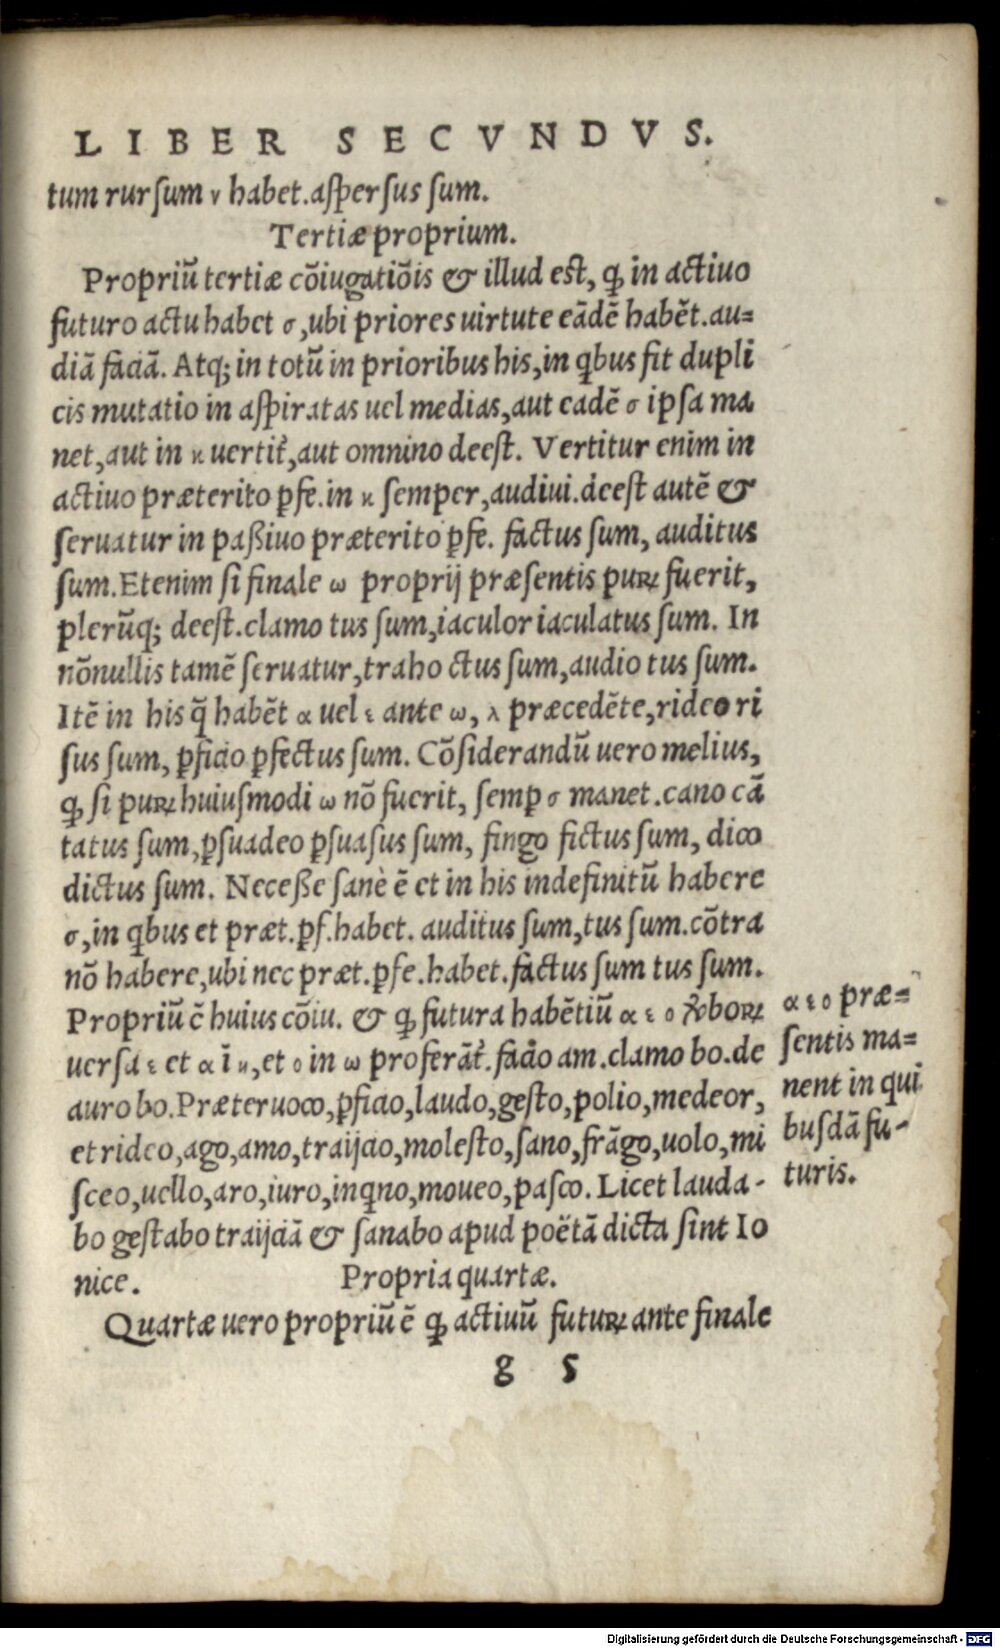 LIBER SECVNDVS.
tum rursum ν habet. aspersus sum.
Tertiæ proprium.
Propriũ tertiæ cõiugatiõis & illud est, ꝙ in actiuo
futuro actu habet σ, ubi priores uirtute eãdẽ habẽt. au=
diã faciã. Atq; in totũ in prioribus his, in qbus fit dupli
cis mutatio in aspiratas uel medias, aut eadẽ σ ipsa ma
net, aut in κ uertit̃, aut omnino deest. Vertitur enim in
actiuo præterito ꝑfe. in κ semper, audiui. deest autẽ &
seruatur in paßiuo præterito ꝑfe. factus sum, auditus
sum. Etenim si finale ω proprij præsentis puꝝ fuerit,
plerũq; deest. clamo tus sum, iaculor iaculatus sum. In
nõnullis tamẽ seruatur, traho ctus sum, audio tus sum.
Itẽ in his q̃ habẽt α uel ε ante ω, λ præcedẽte, rideo ri
sus sum, ꝑficio ꝑfectus sum. Cõsiderandũ uero melius,
ꝙ si puꝝ huiusmodi ω nõ fuerit, semꝑ σ manet. cano cã
tatus sum, ꝑsuadeo ꝑsuasus sum, fingo fictus sum, dico
dictus sum. Neceße sanè ẽ et in his indefinitũ habere
σ, in qbus et præt. ꝑf. habet. auditus sum, tus sum. cõtra
nõ habere, ubi nec præt. ꝑfe. habet. factus sum tus sum.
Propriũ ẽ huius cõiu. & ꝙ futura habẽtiũ α ε ο ỹboꝝ
uersa ε et α ĩ η, et ο in ω proferãt̃. facio am. clamo bo. de
auro bo. Præter uoco, ꝑficio, laudo, gesto, polio, medeor,
et rideo, ago, amo, traijcio, molesto, sano, frãgo, uolo, mi
sceo, uello, aro, iuro, inqno, moueo, pasco. Licet lauda-
bo gestabo traijciã & sanabo apud poëtã dicta sint Io
nice.
Propria quartæ.
Quartæ uero propriũ ẽ ꝙ actiuũ futuꝝ ante finale
g 5
α ε ο præ=
sentis ma=
nent in qui
busdã fu-
turis.
Digitalisierung gefördert durch die Deutsche Forschungsgemeinschaft - DFG